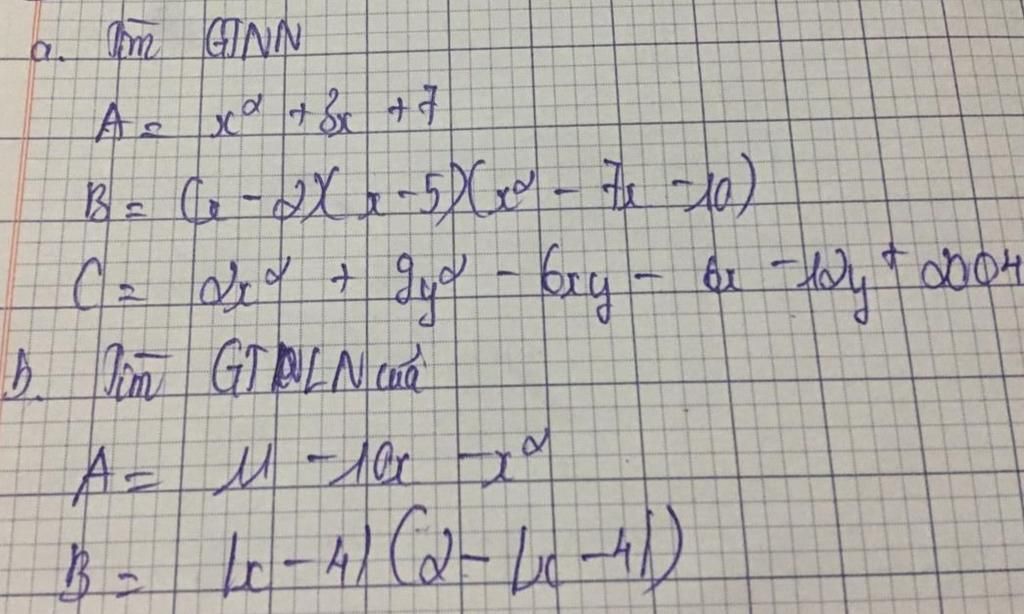 a. Tìm GTNN
A = x² + 3x + 7
B = (x - 2)(x - 5)(x² - 7x - 10)
C = 2x² + 9y² - 6xy - 6x - 12y + 2004
b. Tìm GTLN của
A = 11 - 10x - x²
B = |x - 4|(2 - |x - 4|)